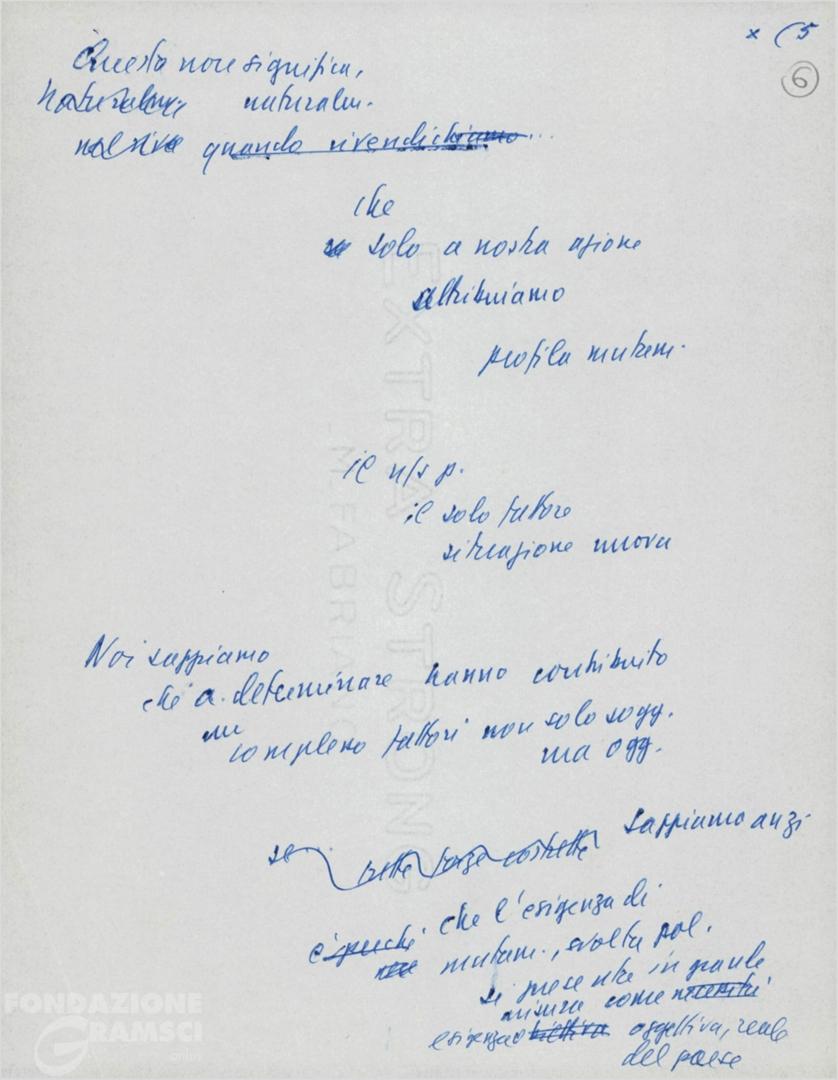 x (5
6
Questo non significa,
naturalm. naturalm.
quando rivendichiamo...
che
se solo a nostra azione
attribuiamo
profila mutam.
il n/s p.
il solo fattore
situazione nuova
Noi sappiamo
che a determinare hanno contribuito
un
complesso fattori non solo sogg.
ma ogg.
se forze costrette sappiamo anzi
è perché che l'esigenza di
mutam., svolta pol.
si presenta in grande
misura come necessità
esigenza oggettiva, reale
del paese
EXTRA STRONG
M. FABRIANO
FONDAZIONE
GRAMSCI
online